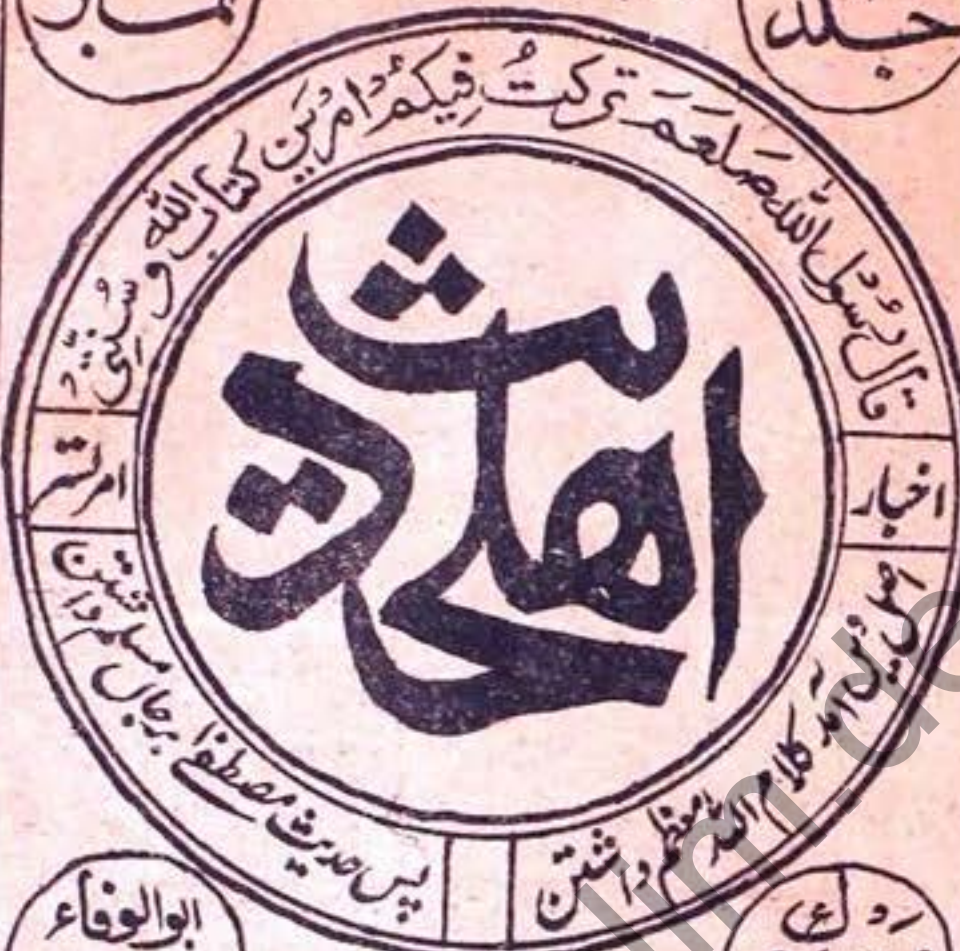 جلد
قال رسول الله صلعم تركتُ فيكم امرين كتاب الله و سنتي
اهلحديث
اخبار
امرتسر
اصل دین آمد کلام اللہ معظم داشتن
پس حدیث مصطفٰے برجاں مسلم داشتن
ابوالوفاء